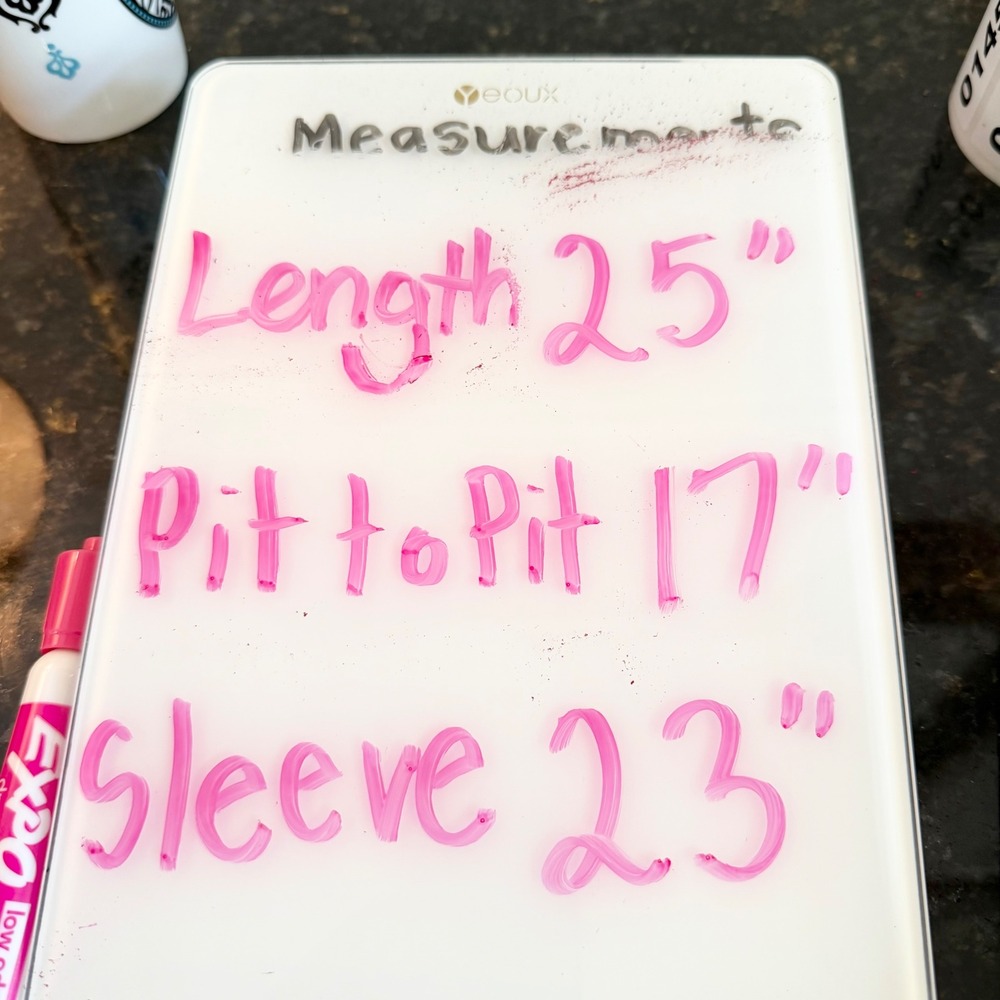 Yeoux
Measurements
Length 25"
Pit to Pit 17"
Sleeve 23"
EXPO
low od
0145